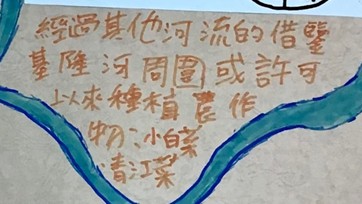 經過其他河流的借鑒
基隆河周圍或許可
以來種植農作
物小白菜
青江菜